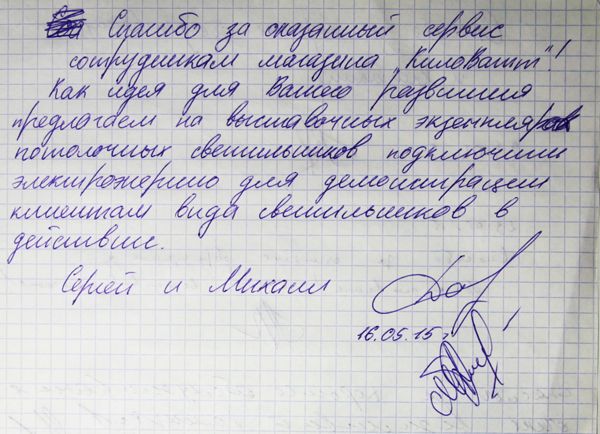 Спасибо за оказанный сервис
сотрудникам магазина "КилоВатт"!
Как идея для Вашего развития
предлагаем на выставочных экземплярах
потолочных светильников подключить
электроэнергию для демонстрации
клиентам вида светильников в
действии.
Сергей и Михаил
16.05.15 г